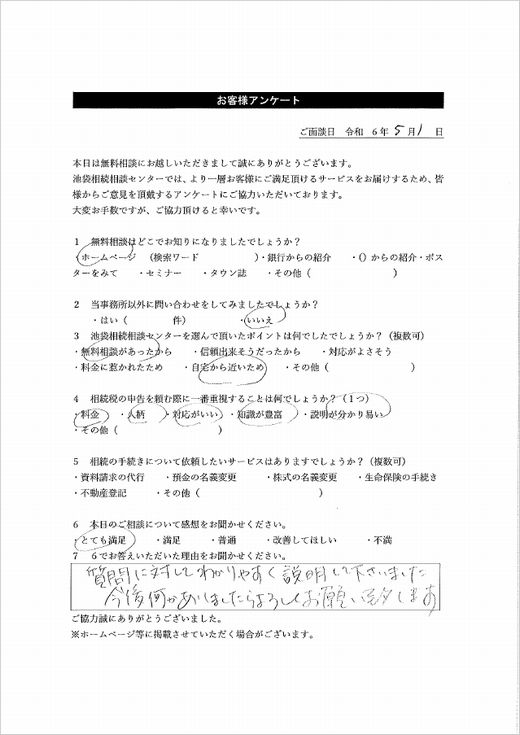 お客様アンケート
ご面談日 令和 6年 5月 1日
本日は無料相談にお越しいただきまして誠にありがとうございます。
池袋相続相談センターでは、より一層お客様にご満足頂けるサービスをお届けするため、皆
様からご意見を頂戴するアンケートにご協力いただいております。
大変お手数ですが、ご協力頂けると幸いです。
1 無料相談はどこでお知りになりましたでしょうか?
・ホームページ (検索ワード )・銀行からの紹介 ・()からの紹介・ポス
ターをみて ・セミナー ・タウン誌 ・その他( )
2 当事務所以外に問い合わせをしてみましたでしょうか?
・はい( 件) ・いいえ
3 池袋相続相談センターを選んで頂いたポイントは何でしたでしょうか?(複数可)
・無料相談があったから ・信頼出来そうだったから ・対応がよさそう
・料金に惹かれたため ・自宅から近いため ・その他( )
4 相続税の申告を頼む際に一番重視することは何でしょうか?(1つ)
・料金 ・人柄 ・対応がいい ・知識が豊富 ・説明が分かり易い
・その他( )
5 相続の手続きについて依頼したいサービスはありますでしょうか?(複数可)
・資料請求の代行 ・預金の名義変更 ・株式の名義変更 ・生命保険の手続き
・不動産登記 ・その他( )
6 本日のご相談について感想をお聞かせください。
・とても満足 ・満足 ・普通 ・改善してほしい ・不満
7 6でお答えいただいた理由をお聞かせください。
質問に対してわかりやすく説明して下さいました
今後何かありましたらよろしくお願い致します
ご協力誠にありがとうございました。
※ホームページ等に掲載させていただく場合がございます。